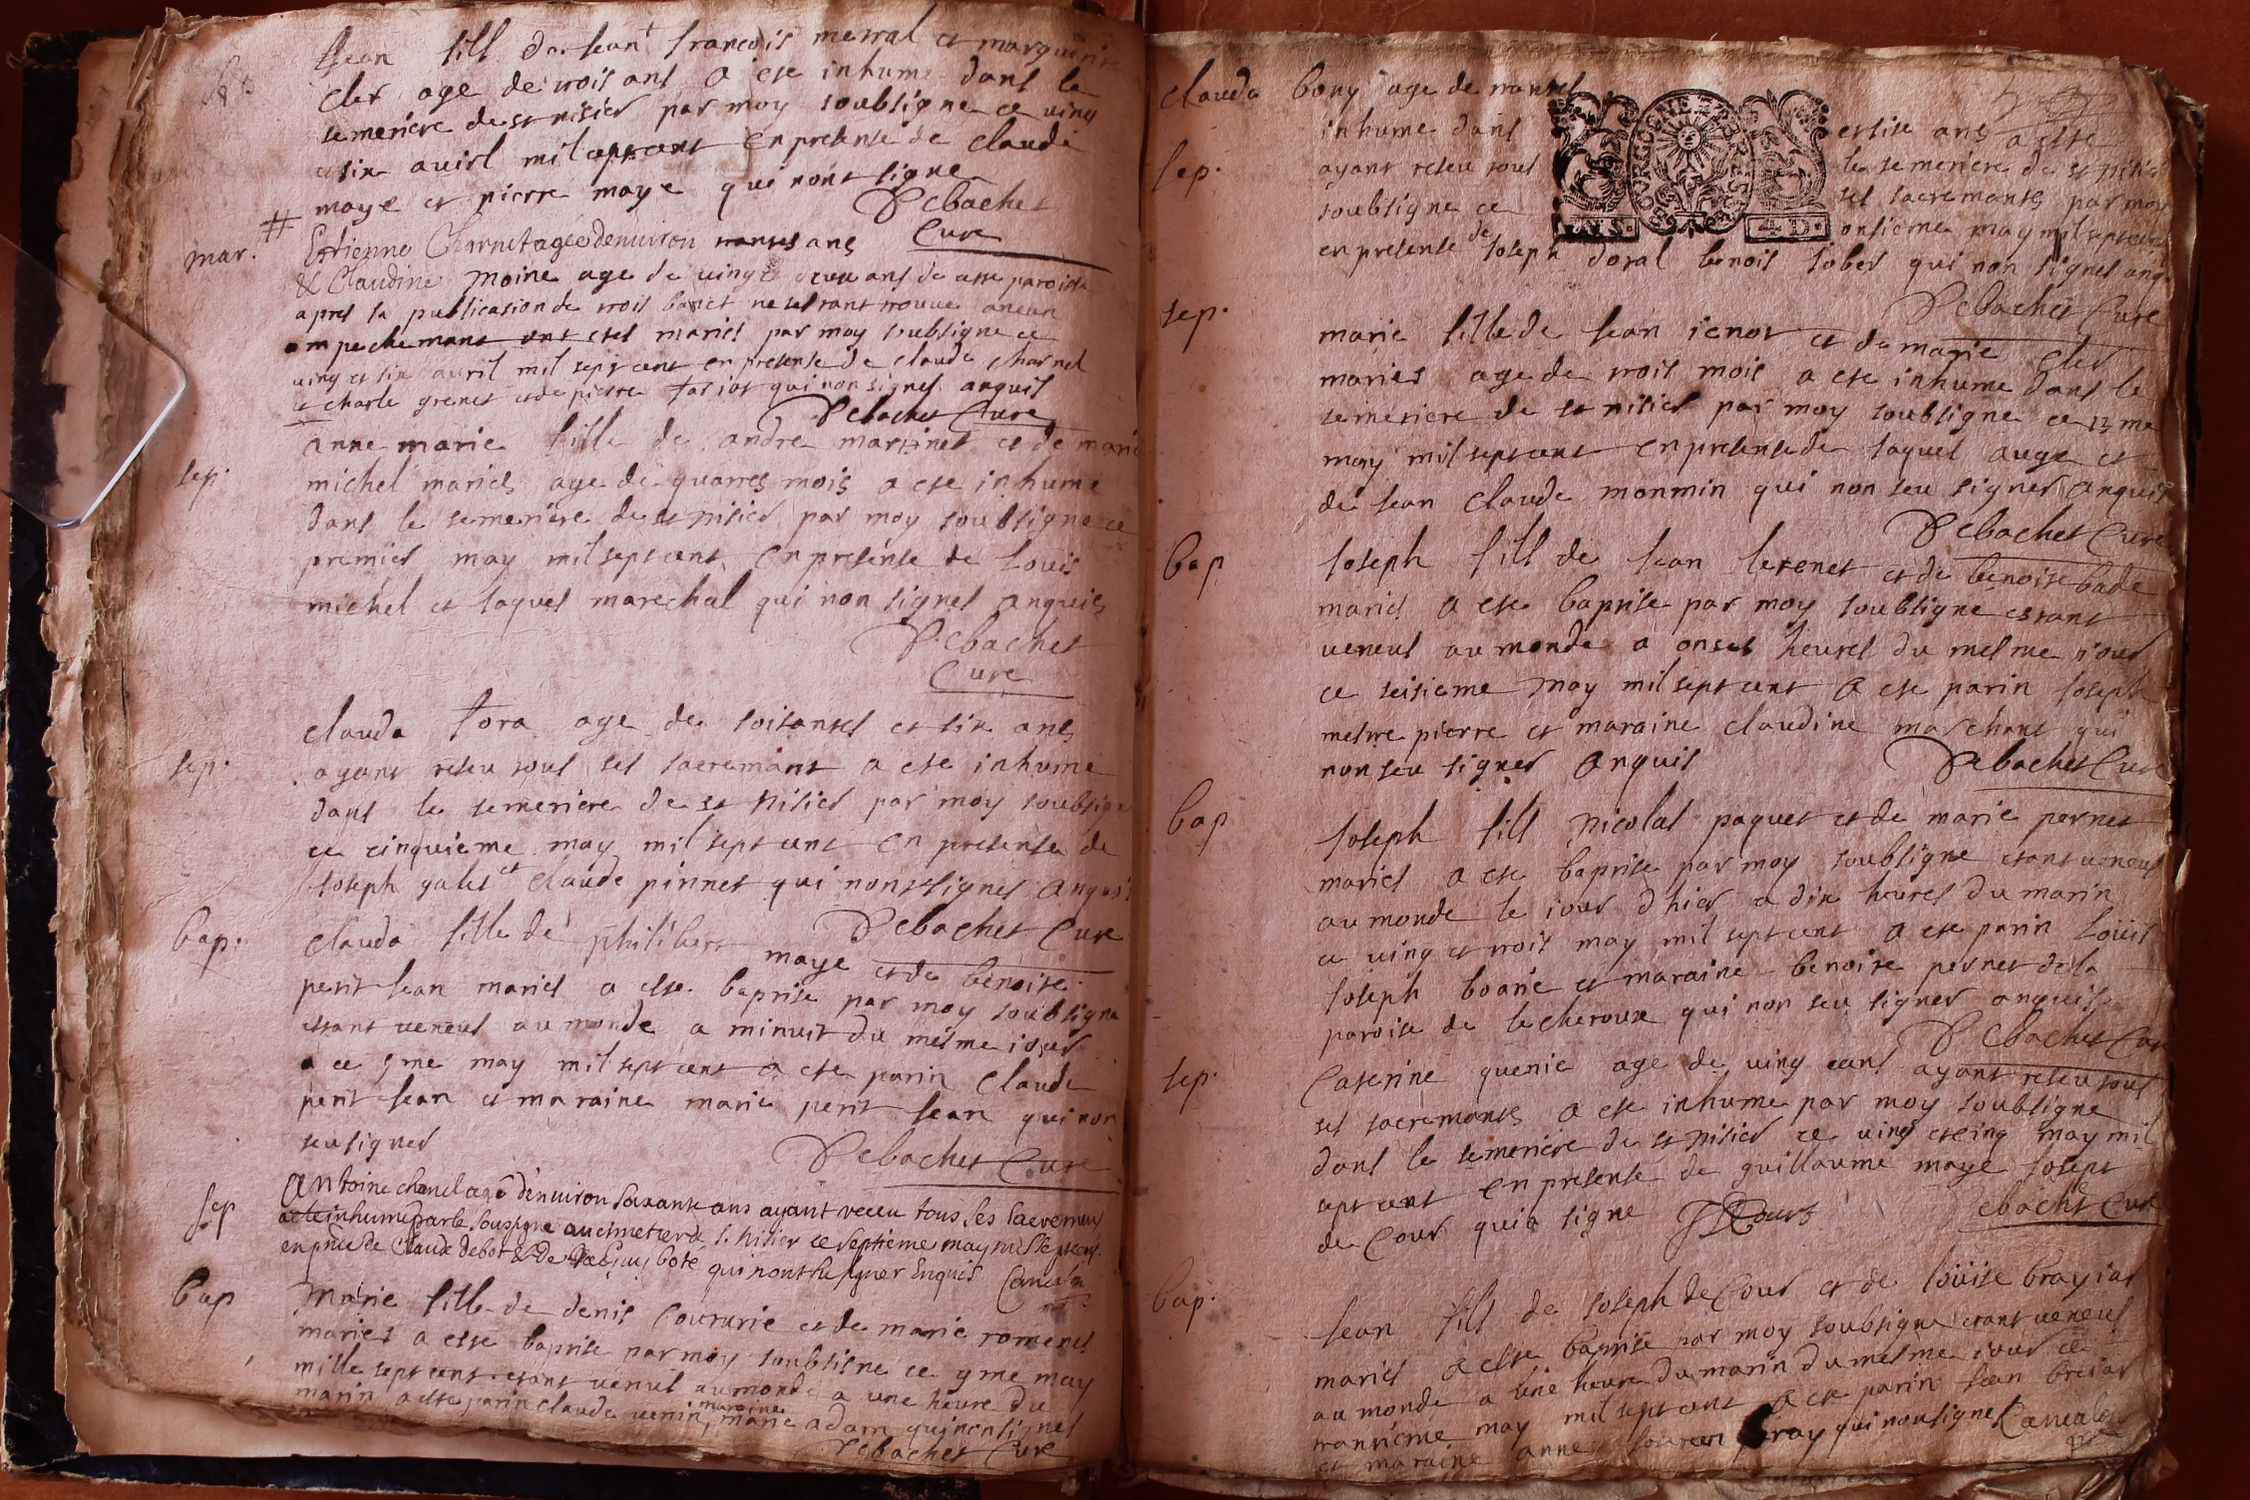 Jean fill de Jean françois merral et marguerite
cler age de trois ans a ete inhume dans le
semetiere de st nisier par moy soubsigne ce ving
et six avirl mil sept cent en presense de claude
maye et pierre maye qui nont signe
Debachet
Cure
mar.
Estienne Charnet agée denuiron trantes ans
& Claudine moine age de uingt deux ans de cette paroisse
apres la publication de trois bancs ne sestant trouue aucun
ampechemant ont estes maries par moy soubsigne ce
uing et six auril mil sept cent en presense de claude charnel
et charle grenet et de pierre foriot qui non signes anquis
Debachet Cure
sep.
anne marie fille de andre martinet et de marie
michel maries age de quatres mois a ete inhume
dans le semetiere de st nisier par moy soubsigne ce
premier may mil sept cent en presense de Louis
michel et Jaques marechal qui non signes anquis
Debachet
Cure
sep.
clauda fora age de soisantes et six ans
ayant reseu tous ses sacremant a ete inhume
dans le semetiere de st nisier par moy soubsigne
ce cinquieme may mil sept cent en presense de
Joseph gales et claude pinnet qui nont signes anquis
Debachet Cure
bap.
clauda fille de philibert maye et de benoite
petit Jean maries a este baptise par moy soubsigne
estant veneus au monde a minuit du mesme iour
a ce 9 me may mil sept cent a ete parin Claude
petit Jean et maraine marie petit Jean qui non
seu signer
Debachet Cure
sep
Antoine chanel agé denuiron soixante ans ayant receu tous ses sacremens
a ete inhumé par le sousigné au cimetier de st nisier ce septieme may mil sept cens
en pnce de Claude debot & de boté qui nont su signer enquis
Bap
marie fille de denis Couturie et de marie romenet
maries a este baptise par moy soubsigne ce 9 me may
mille sept cent estant venus au monde a une heure du
matin a este parin claude venin, maraine marie adam qui non signes
Debachet Cure
clauda bony age de trantes et six ans a este
sep.
inhume dans le semetiere de st nisier
ayant reseu tous ses sacremants par moy
soubsigne ce onsieme may mil sept cent
en presense de Joseph doral benoit Jober qui non signes anq
Debachet Cure
sep.
marie fille de Jean ienot et de marie cler
maries age de trois mois a ete inhume dans le
semetiere de st nisier par moy soubsigne ce 13 me
may mil sept cent en presense de Jaques auge et
de Jean Claude monmin qui non seu signer anquis
Debachet Cure
bap
Joseph fill de Jean leternet et de benoite bade
maries a ete baptise par moy soubsigne estant
veneus au monde a onses heures du mesme iour
ce seisieme may mil sept cent a ete parin Joseph
mestre pierre et maraine claudine marchant qui
non seu signer anquis
Debachet Cure
bap
Joseph fill nicolas paquet et de marie pernet
maries a ete baptise par moy soubsigne etant veneus
au monde le iour dhier a dix heures du matin
ce ving et trois may mil sept cent a ete parin Louis
Joseph boarie et maraine benoite pernet de la
paroise de lecheroux qui non seu signer anquis
Debachet Cure
sep.
Caterine guenie age de ving ans ayant reseu tous
ses sacremants a ete inhume par moy soubsigne
dans le semetiere de st nisier ce ving et cinq may mil
sept cent en presense de guillaume maye Joseph
de Cour qui a signe J DCour
Debachet Cure
bap.
Jean fill de Joseph de Cour et de loüise brayiat
maries a este baptise par moy soubsigne etant veneus
au monde a une heure du matin du mesme iour ce
trantieme may mil sept cent a ete parin Jean breiat
et maraine anne bray qui non signe